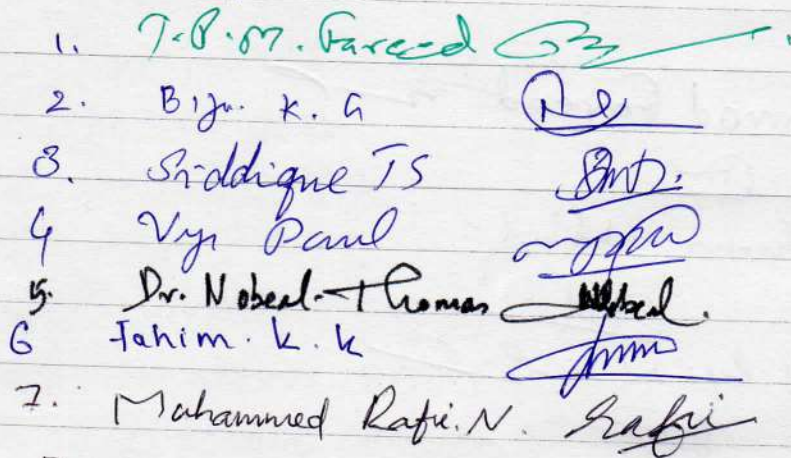 1. T.P.M. Fareed
2. Biju. K. G
3. Siddique TS
4 Vyi Paul
5. Dr. Nobeal. Thomas Nobeal.
6 Fahim. K. K
7. Muhammed Rafi. N. Rafi